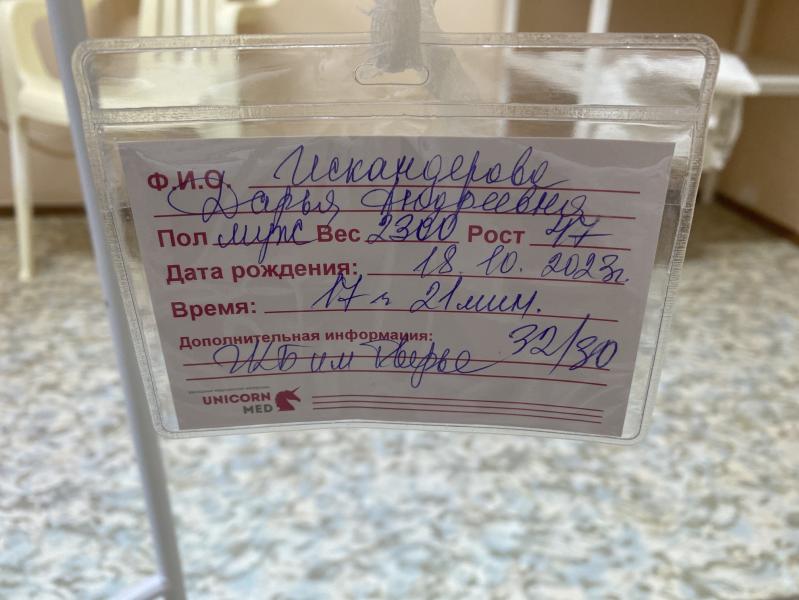 Ф.И.О. Искандерова
Дарья Андреевна
Пол муж Вес 2300 Рост 47
Дата рождения: 18.10.2023г.
Время: 17 ч 21 мин.
Дополнительная информация: 32/30
ЖБ им
UNICORN
MED